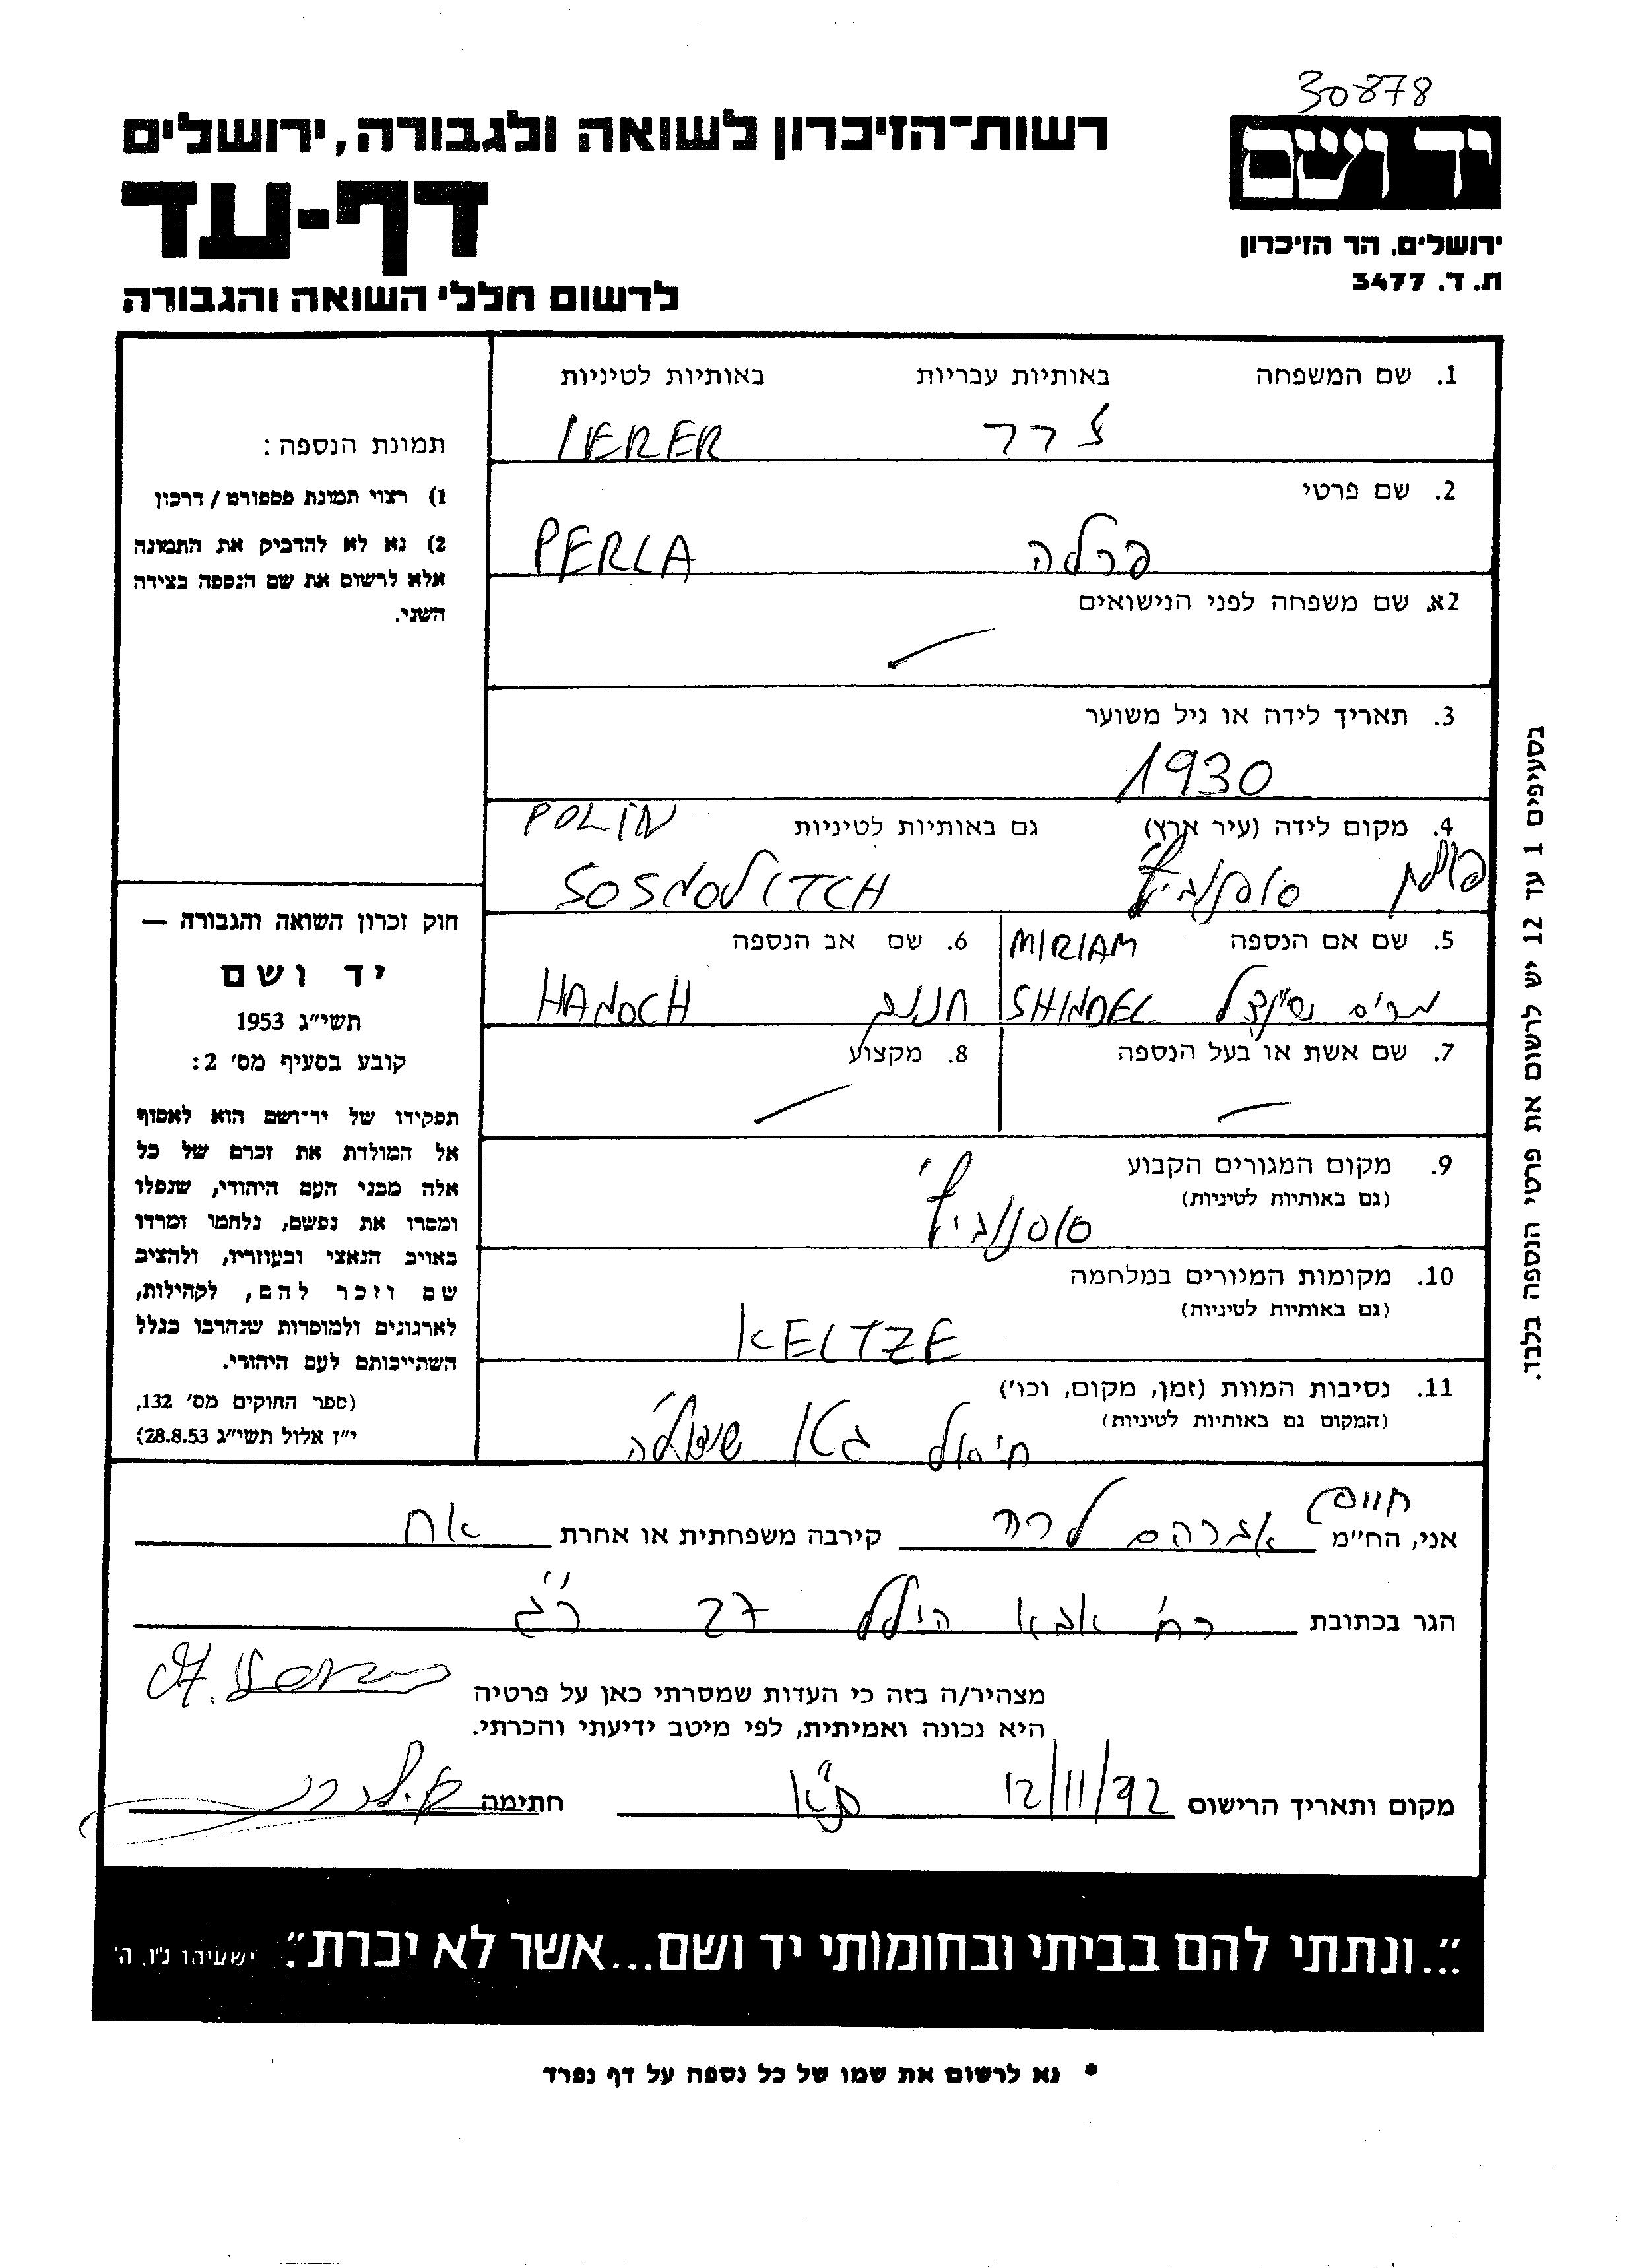 30878
יד ושם
רשות־הזיכרון לשואה ולגבורה, ירושלים
דף-עד
ירושלים, הר הזיכרון
ת. ד. 3477
לרשום חללי השואה והגבורה
1. שם המשפחה באותיות עבריות באותיות לטיניות
לרר LERER
2. שם פרטי
פרלה PERLA
2א. שם משפחה לפני הנישואים
3. תאריך לידה או גיל משוער
1930
4. מקום לידה (עיר ארץ) גם באותיות לטיניות POLIN
פולין סוסנוביץ' SOSNOVITCH
5. שם אם הנספה MIRIAM
מרים שינדל SHINDEL
6. שם אב הנספה
חנוך HANOCH
7. שם אשת או בעל הנספה
8. מקצוע
9. מקום המגורים הקבוע
(גם באותיות לטיניות)
סוסנוביץ'
10. מקומות המגורים במלחמה
(גם באותיות לטיניות)
KELTZE
11. נסיבות המוות (זמן, מקום, וכו')
(המקום גם באותיות לטיניות)
חיסול גטו
תמונת הנספה:
1) רצוי תמונת פספורט / דרכון
2) נא לא להדביק את התמונה
אלא לרשום את שם הנספה בצידה
השני.
חוק זכרון השואה והגבורה —
יד ושם
תשי״ג 1953
קובע בסעיף מס׳ 2:
תפקידו של יד־ושם הוא לאסוף
אל המולדת את זכרם של כל
אלה מבני העם היהודי, שנפלו
ומסרו את נפשם, נלחמו ומרדו
באויב הנאצי ובעוזריו, ולהציב
שם וזכר להם, לקהילות,
לארגונים ולמוסדות שנחרבו בגלל
השתייכותם לעם היהודי.
(ספר החוקים מס׳ 132,
י״ז אלול תשי״ג 28.8.53)
בסעיפים 1 עד 12 יש לרשום את פרטי הנספה בלבד.
חיים
אני, הח״מ אברהם לרר קירבה משפחתית או אחרת אח
הגר בכתובת רח' אבא הילל 27 ר"ג
מצהיר/ה בזה כי העדות שמסרתי כאן על פרטיה
היא נכונה ואמיתית, לפי מיטב ידיעתי והכרתי.
מקום ותאריך הרישום 12/11/92 ת"א חתימה א. לרר
״...ונתתי להם בביתי ובחומותי יד ושם...אשר לא יכרת״. ישעיהו נ״ו, ה׳
* נא לרשום את שמו של כל נספה על דף נפרד